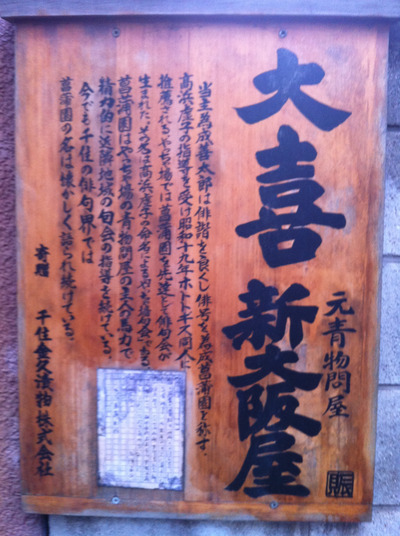 大喜
新大阪屋
元青物問屋
当主為成善太郎は俳諧を良くし俳号を為成菖蒲園と称す。
高浜虚子の指導を受け昭和十九年ホトトギス同人に
推薦されるやっちゃ場では菖蒲園を先達として俳句会が
生まれた。その名は高浜虚子の命名によるやっちゃ場句会である
菖蒲園はやっちゃ場の青物問屋の主人の馬力で
精力的に近隣地域の句会の指導を続けている。
今でも千住の俳句界では
菖蒲園の名は懐かしく語られ続けている。
寄贈 千住金久漬物株式会社